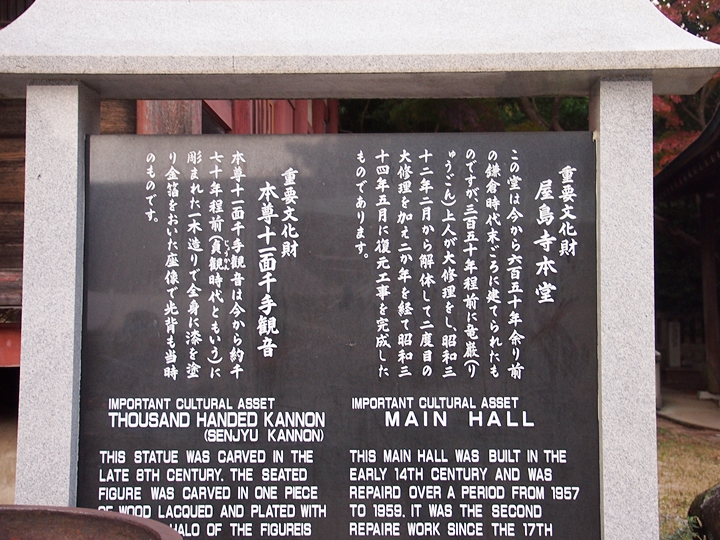 重要文化財
屋島寺本堂
この堂は今から六百五十年余り前
の鎌倉時代末ごろに建てられたも
のですが、三百五十年程前に竜厳(り
ゅうごん)上人が大修理をし、昭和三
十二年二月から解体して二度目の
大修理を加え二か年を経て昭和三
十四年五月に復元工事を完成した
ものであります。
重要文化財
本尊十一面千手観音
本尊十一面千手観音は今から約千
七十年程前(貞観時代ともいう)に
彫まれた一木造りで全身に漆を塗
り金箔をおいた座像で光背も当時
のものです。
IMPORTANT CULTURAL ASSET
THOUSAND HANDED KANNON
(SENJYU KANNON)
THIS STATUE WAS CARVED IN THE
LATE 8TH CENTURY. THE SEATED
FIGURE WAS CARVED IN ONE PIECE
OF WOOD LACQUED AND PLATED WITH
HALO OF THE FIGUREIS
IMPORTANT CULTURAL ASSET
MAIN HALL
THIS MAIN HALL WAS BUILT IN THE
EARLY 14TH CENTURY AND WAS
REPAIRD OVER A PERIOD FROM 1957
TO 1959. IT WAS THE SECOND
REPAIRE WORK SINCE THE 17TH